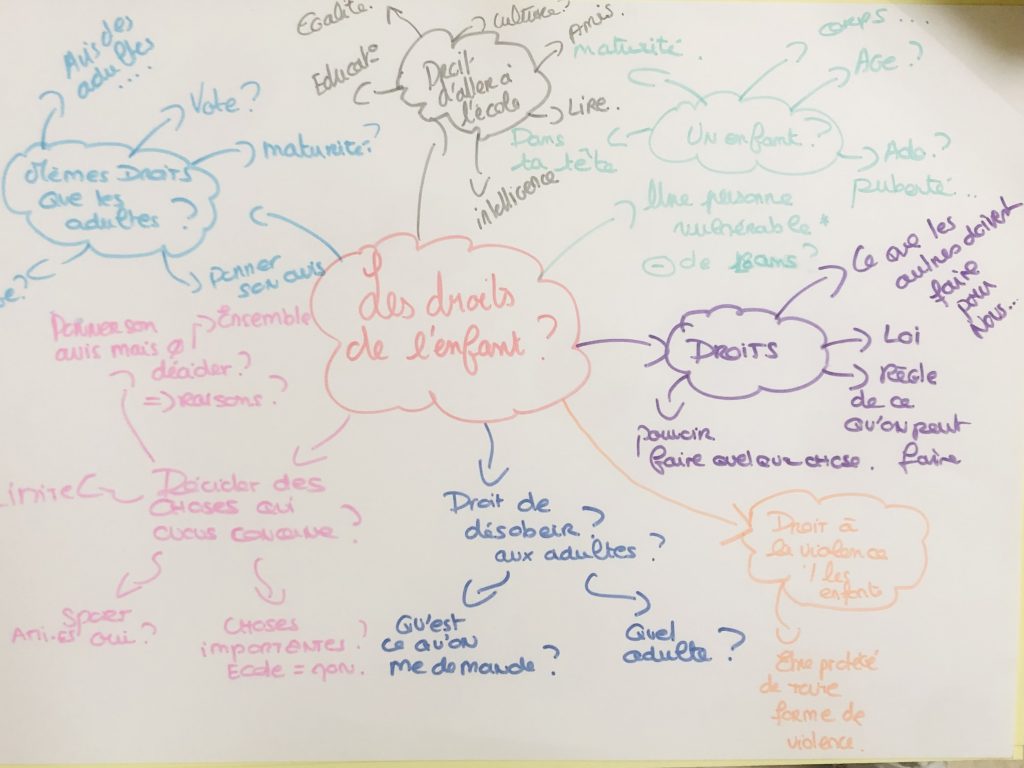 Les droits
de l'enfant ?
Avis des
adultes
....
Vote ?
maturité ?
Mêmes DROITS
que les
adultes ?
Donner
son avis
Egalité.
Culture ?
Amis.
Educat°
Droit
d'aller à
l'école
Lire.
intelligence
maturité.
Corps ...
Age ?
Un enfant ?
Dans
ta tête
Ado ?
puberté...
Une personne
vulnérable *
⊖ de ans ?
DROITS
Ce que les
autres doivent
faire
pour
Nous...
Loi
Règle
de ce
qu'on peut
faire
pouvoir
faire quelque chose.
Donner son
avis mais ∅
décider ?
=> raisons ?
Ensemble
Décider des
choses qui
nous concerne ?
Limite
Sport
Ami.es oui ?
CHOSES
importantes ?
Ecole = non.
Droit de
désobéir ?
aux adultes ?
Qu'est
ce qu'on
me demande ?
Quel
adulte ?
Droit à
la violence
les
enfants
Etre protégé
de toute
forme de
violence.